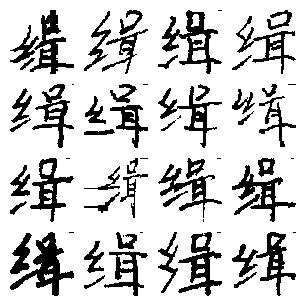 缉缉缉缉
缉缉缉缉
缉缉缉缉
缉缉缉缉